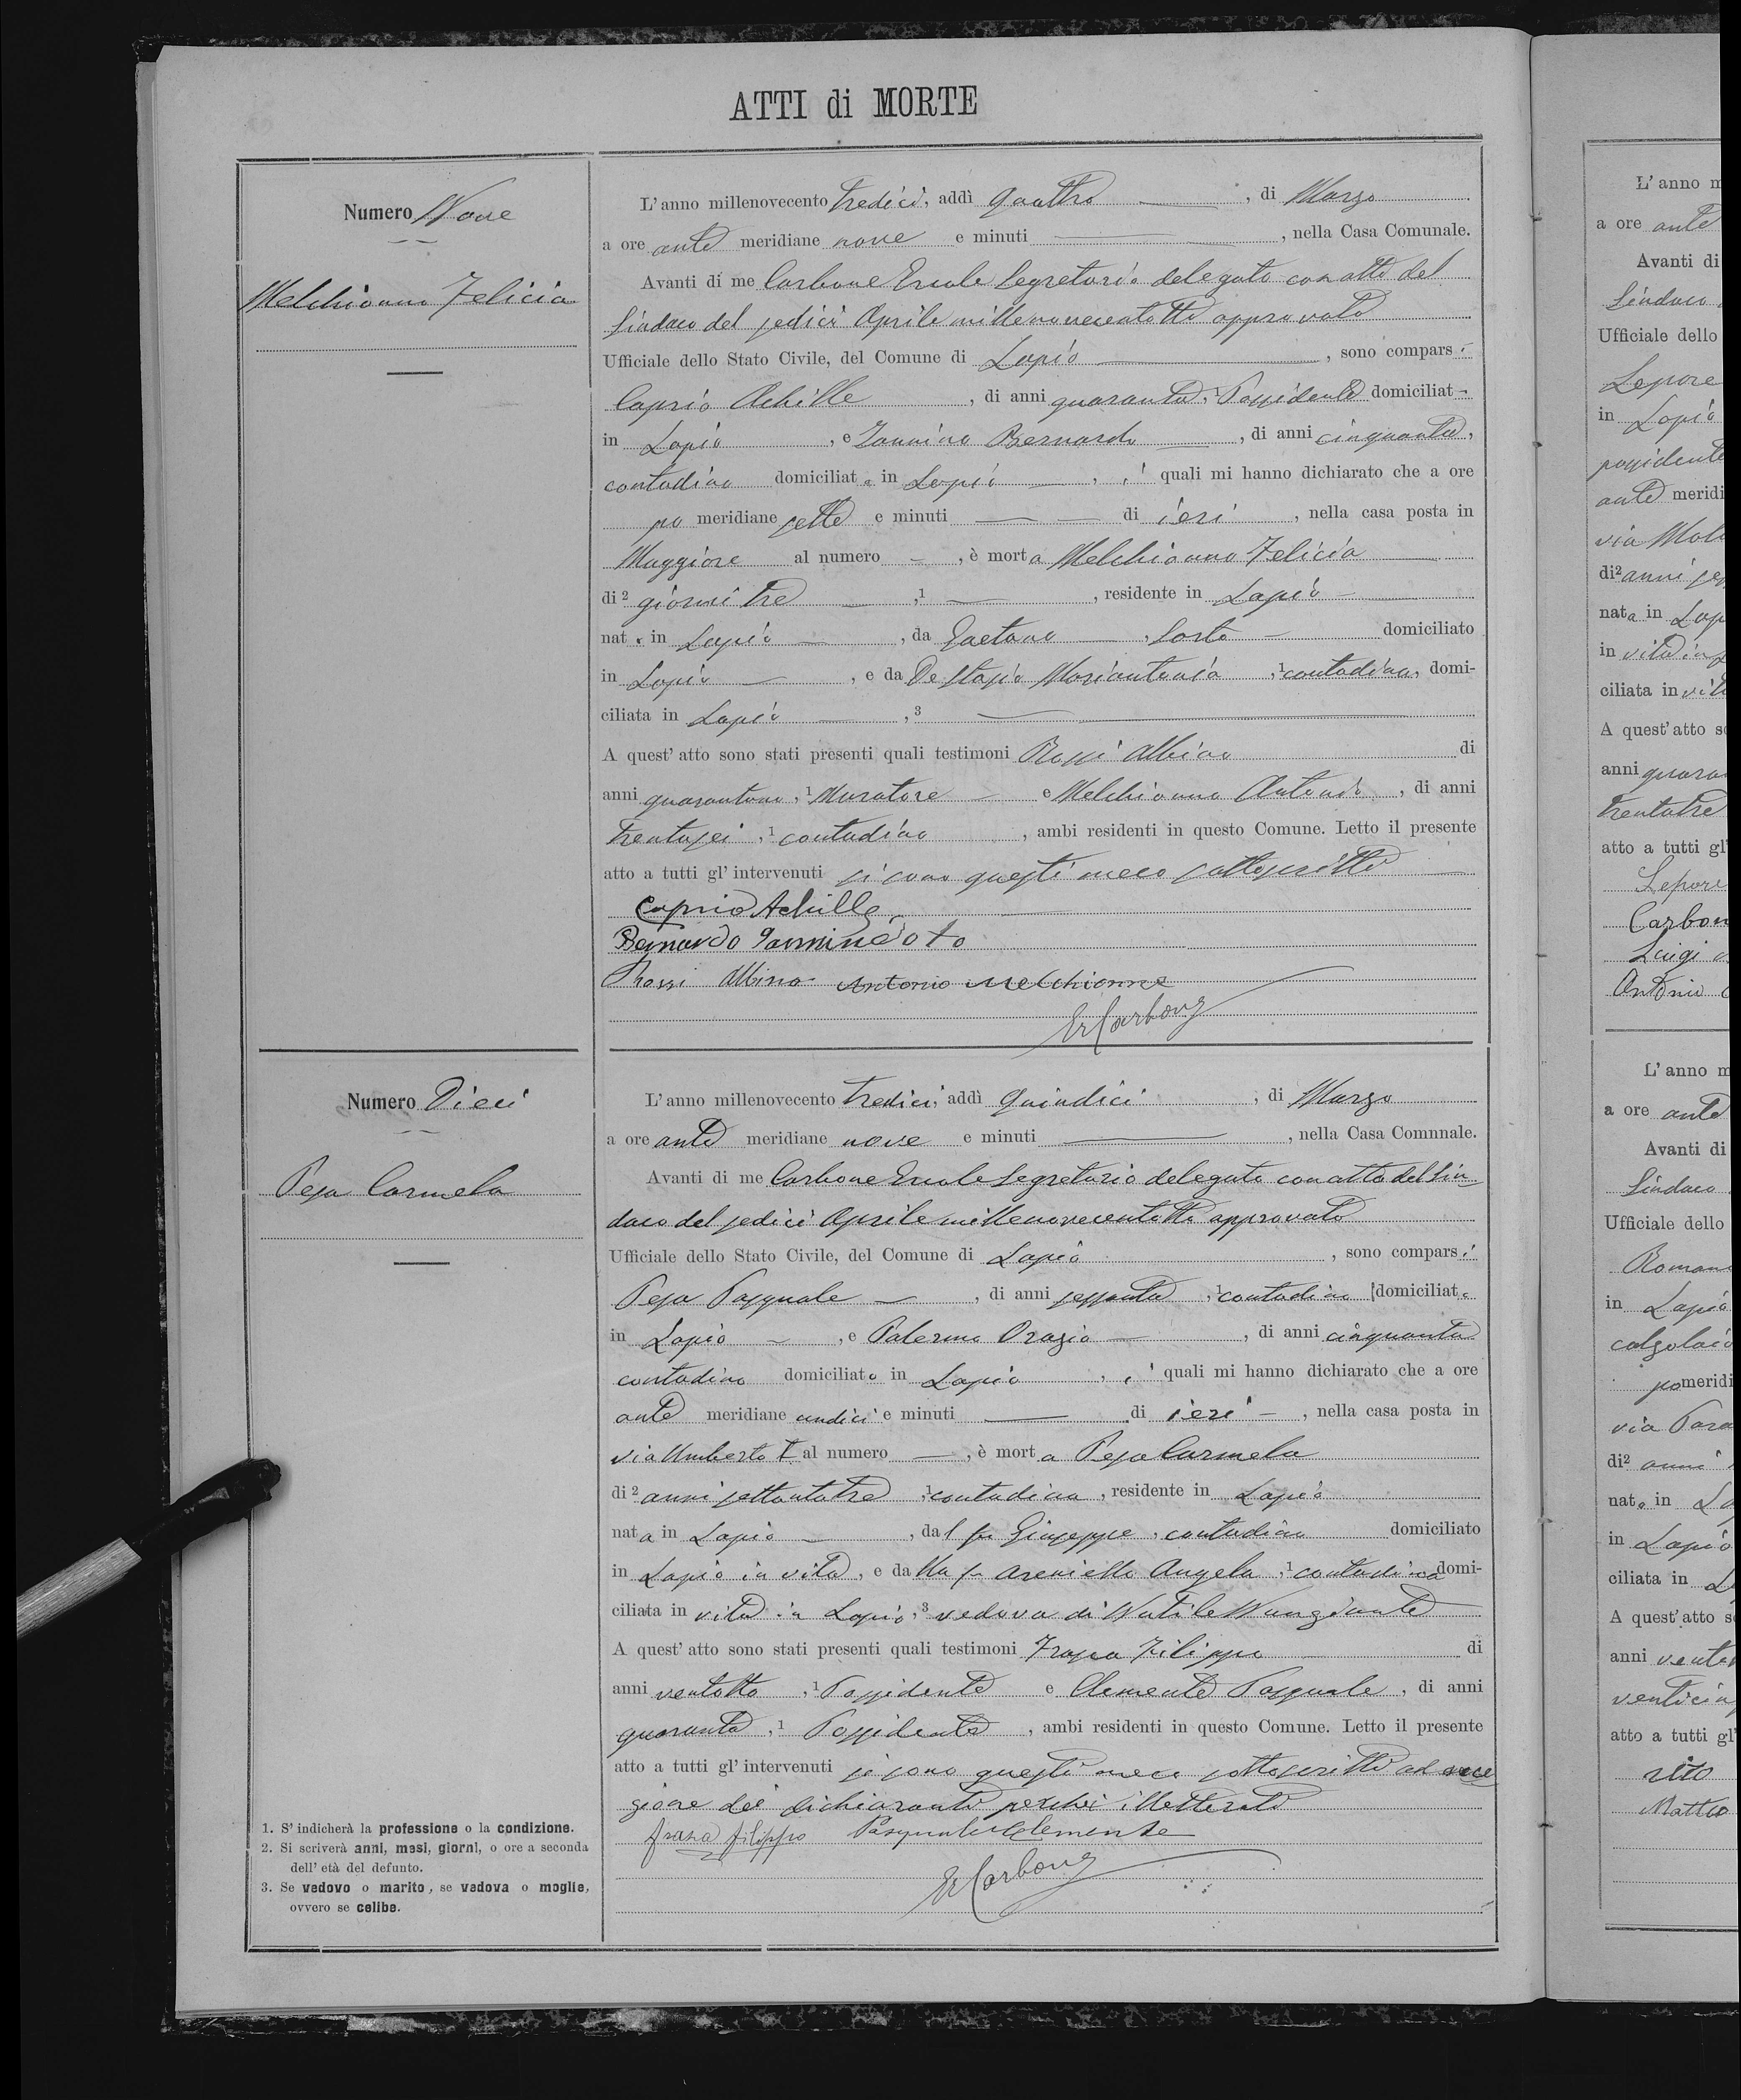 ATTI di MORTE
Numero Nove
Melchionna Felicia
L'anno millenovecento tredici, addì quattro, di Marzo
a ore ante meridiane nove e minuti —, nella Casa Comunale.
Avanti di me Carbone Ercole Segretario delegato con atto del
Sindaco del sedici Aprile millenovecentotto approvato
Ufficiale dello Stato Civile, del Comune di Lapio —, sono comparsi
Caprio Achille, di anni quaranta, 1 Possidente domiciliat-
in Lapio, e Iannino Bernardo —, di anni cinquanta,
contadino domiciliato in Lapio —, i quali mi hanno dichiarato che a ore
po meridiane sette e minuti — — di ieri, nella casa posta in
Maggiore al numero —, è morta Melchionna Felicia —
di 2 giorni tre —, 1 —, residente in Lapio —
nata in Lapio —, da Gaetano —, Sarto — domiciliato
in Lapio —, e da De Stasio Mariantonia, 1 contadina, domi-
ciliata in Lapio —, 3 —
A quest' atto sono stati presenti quali testimoni Rossi Albino di
anni quarantuno, 1 Muratore — e Melchionna Antonio, di anni
trentasei, 1 contadino, ambi residenti in questo Comune. Letto il presente
atto a tutti gl' intervenuti si sono questi meco sottoscritti —
Caprio Achille
Bernardo
Rossi Albino Antonio Melchionna
Er Carbone
Numero Dieci
Pesa Carmela
L'anno millenovecento tredici, addì quindici, di Marzo
a ore ante meridiane nove e minuti —, nella Casa Comnnale.
Avanti di me Carbone Ercole Segretario delegato con atto del Sin-
daco del sedici Aprile millenovecentotto approvato
Ufficiale dello Stato Civile, del Comune di Lapio, sono comparsi
Pesa Pasquale —, di anni sessanta, 1 contadino domiciliato
in Lapio —, e Palermo Orazio —, di anni cinquanta
contadino domiciliato in Lapio, i quali mi hanno dichiarato che a ore
ante meridiane undici e minuti — di ieri —, nella casa posta in
via Umberto I al numero —, è morta Pesa Carmela
di 2 anni settantatre, 1 contadina, residente in Lapio
nata in Lapio —, dal fu Giuseppe, contadino domiciliato
in Lapio in vita, e dalla fu Areniello Angela, 1 contadina domi-
ciliata in vita in Lapio, 3 vedova di Natile Nunziante
A quest' atto sono stati presenti quali testimoni Frasa Filippo — di
anni ventotto, 1 Possidente e Clemente Pasquale, di anni
quaranta, 1 Possidente, ambi residenti in questo Comune. Letto il presente
atto a tutti gl' intervenuti si sono questi meco sottoscritti ad ecce
zione dei dichiaranti perchè illetterati
frasa filippo Pasquale Clemente
Er Carbone
1. S' indicherà la professione o la condizione.
2. Si scriverà anni, mesi, giorni, o ore a seconda
dell' età del defunto.
3. Se vedovo o marito, se vedova o moglie,
ovvero se celibe.
L' anno m
a ore ante
Avanti di
Sindaco
Ufficiale dello
Lepore
in Lapio
possidente
ante meridi
via
di 2 anni
nata in Lap
in vita in
ciliata in vit
A quest' atto s
anni quara
trentatre
atto a tutti gl'
Lepore
Carbon
Luigi
Antonio
L' anno m
a ore ante
Avanti di
Sindaco
Ufficiale dello
Romano
in Lapio
calzolaio
pomeridi
via
di 2 anni
nato in La
in Lapio
ciliata in L
A quest' atto s
anni
venticin
atto a tutti gl'
Matteo